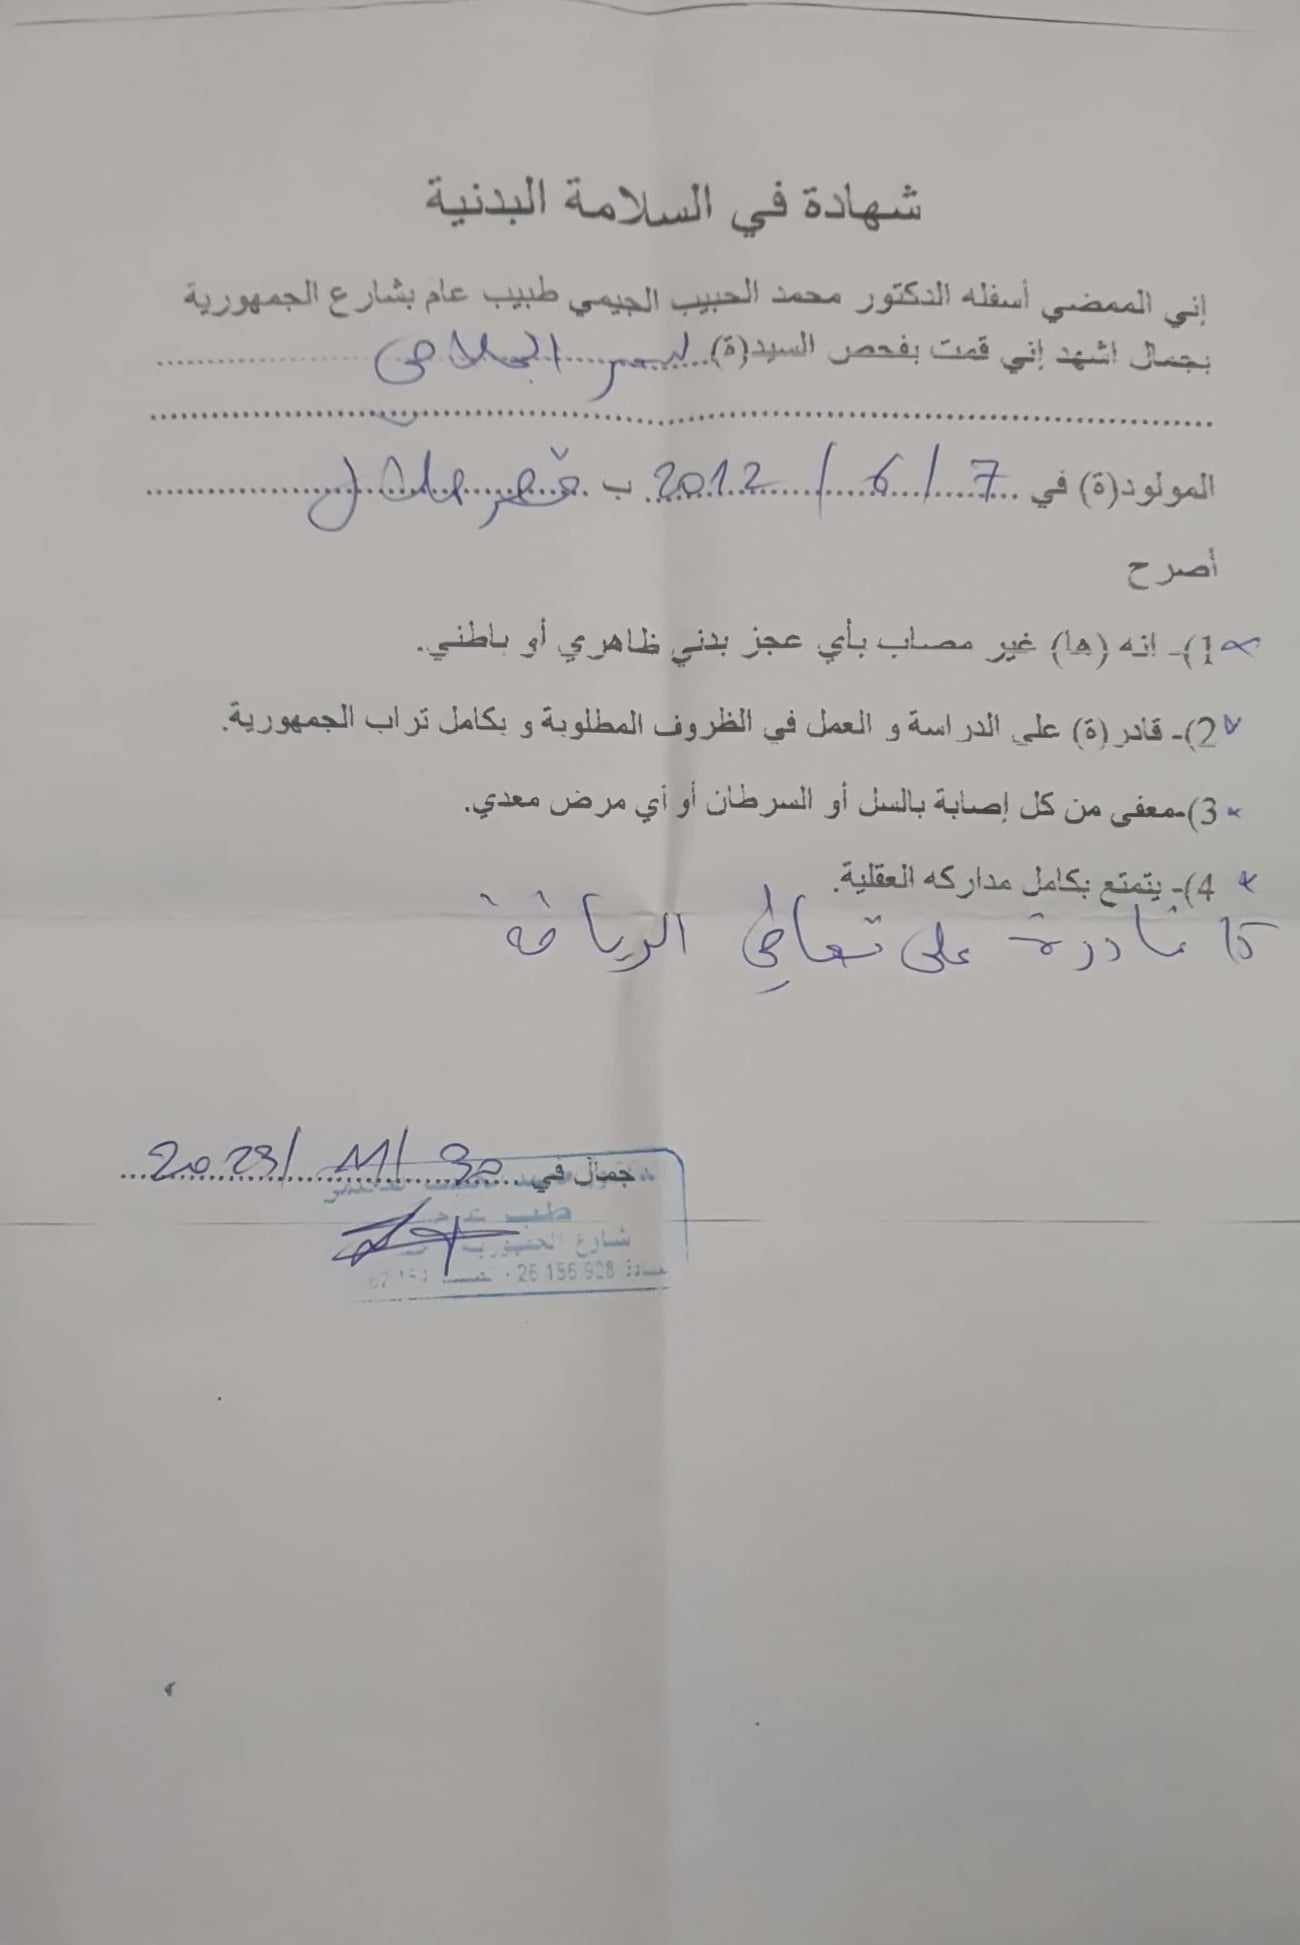 شهادة في السلامة البدنية
إني الممضي أسفله الدكتور محمد الحبيب الجيمي طبيب عام بشارع الجمهورية
بجمال اشهد إني قمت بفحص السيد(ة)
المولود(ة) في 7 / 6 / 2012 ب قصر هلال
أصرح
1)- انه (ها) غير مصاب بأي عجز بدني ظاهري أو باطني.
2)- قادر(ة) على الدراسة و العمل في الظروف المطلوبة و بكامل تراب الجمهورية.
3)-معفى من كل إصابة بالسل أو السرطان أو أي مرض معدي.
4)- يتمتع بكامل مداركه العقلية.
5) قادرة على تعاطي الرياضة
جمال في 30 / 11 / 2023
شارع الجمهورية
26 156 928